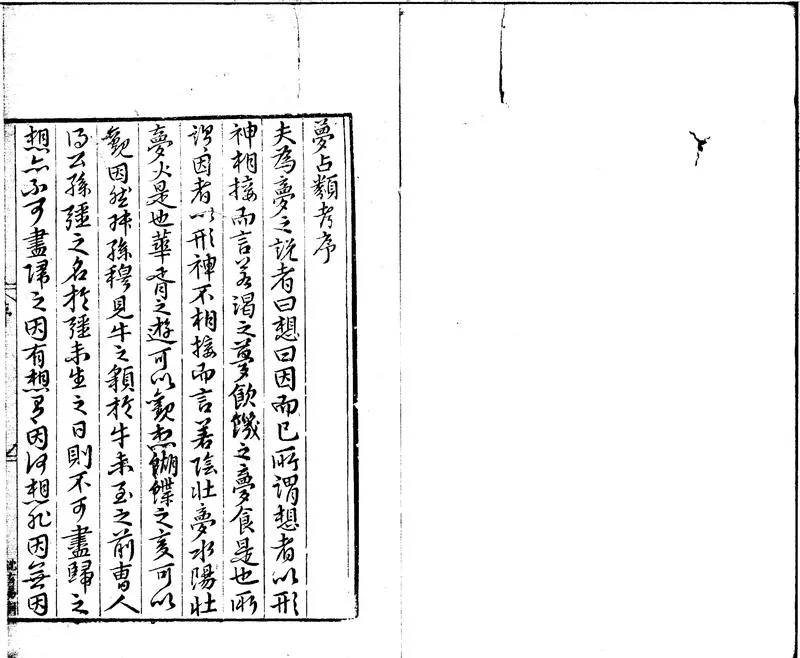 夢占類考序
夫為夢之說者曰想曰因而已所謂想者以形
神相接而言若渴之夢飲饑之夢食是也所
謂因者以形神不相接而言若陰壯夢水陽壯
夢火是也華胥之遊可以觀想蝴蝶之變可以
觀因然叔孫穆見牛之貌於牛未至之前曹人
得公孫彊之名於彊未生之日則不可盡歸之
想亦不可盡歸之因有想有因何想非因無因